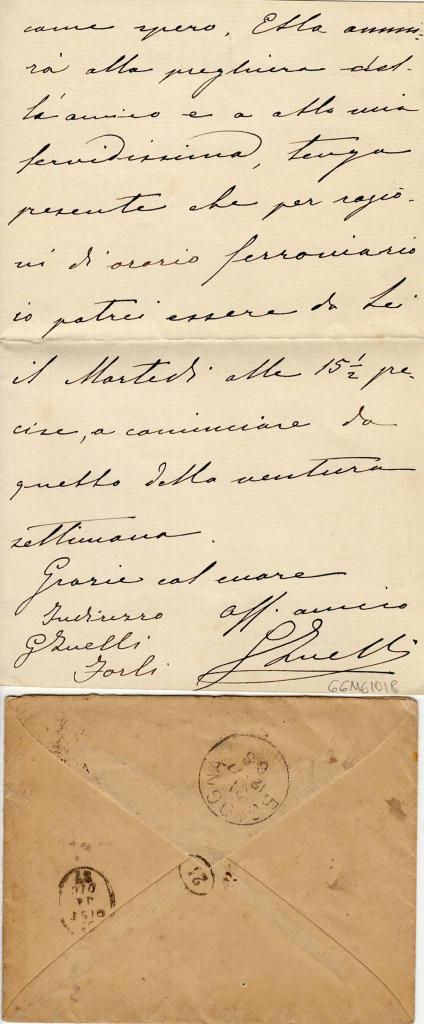 come spero, Ella annui-
rà alla preghiera del-
l'amico e a alla mia
fervidissima, tenga
presente che per ragio-
ni di orario ferroviario
io potrei essere da Lei
il Martedì alle 15½ pre-
cise, a cominciare da
quello della ventura
settimana.
Grazie col cuore
Indirizzo aff. amico
GZuelli GZuelli
Forlì
GGMG1018
BOLOGNA
12
21
DIST
DIC